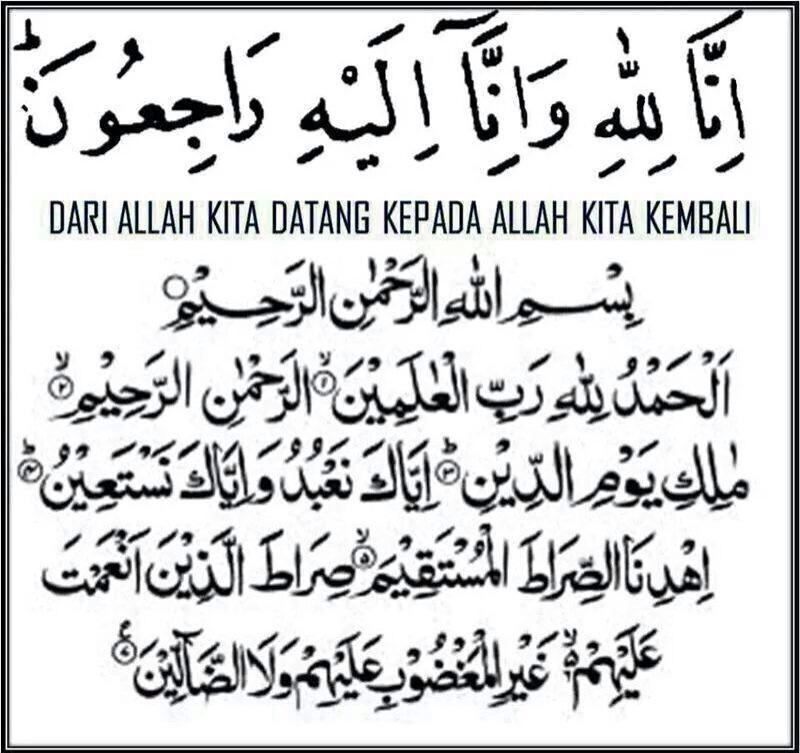 اِنَّا لِلّٰهِ وَاِنَّآ اِلَيْهِ رَاجِعُوْنَؕ
DARI ALLAH KITA DATANG KEPADA ALLAH KITA KEMBALI
بِسْمِ اللهِ الرَّحْمٰنِ الرَّحِيْمِ ○
اَلْحَمْدُ لِلّٰهِ رَبِّ الْعٰلَمِيْنَۙ ۝۱ الرَّحْمٰنِ الرَّحِيْمِۙ ۝۲
مٰلِكِ يَوْمِ الدِّيْنِؕ ۝۳ اِيَّاكَ نَعْبُدُ وَاِيَّاكَ نَسْتَعِيْنُؕ ۝۴
اِهْدِنَا الصِّرَاطَ الْمُسْتَقِيْمَۙ ۝۵ صِرَاطَ الَّذِيْنَ اَنْعَمْتَ
عَلَيْهِمْ ۙ۬ۦ غَيْرِ الْمَغْضُوْبِ عَلَيْهِمْ وَلَا الضَّآلِّيْنَ ۝۷